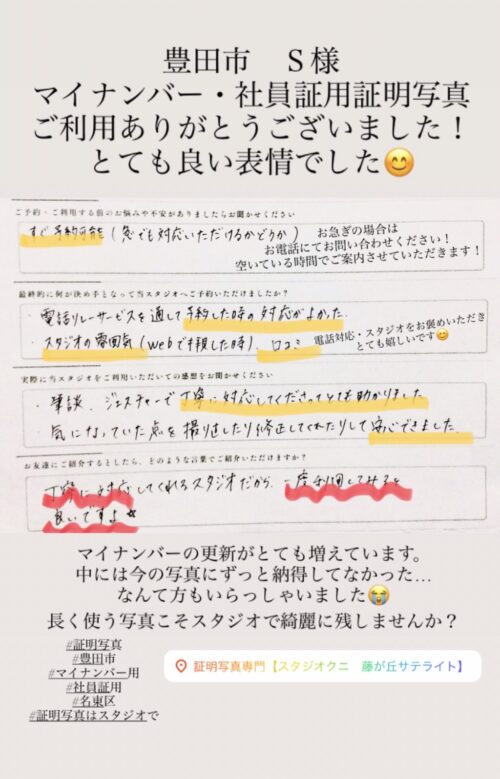 豊田市　S様
マイナンバー・社員証用証明写真
ご利用ありがとうございました！
とても良い表情でした😊
ご予約・ご利用する前のお悩みや不安がありましたらお聞かせください
すぐ予約可能(急でも対応いただけるかどうか)
お急ぎの場合は
お電話にてお問い合わせください！
空いている時間でご案内させていただきます！
最終的に何が決め手となって当スタジオへご予約いただけましたか？
・電話リレーサービスを通して予約した時の対応がよかった.
・スタジオの雰囲気(webで拝見した時)、口コミ
電話対応・スタジオをお褒めいただき
とても嬉しいです😊
実際に当スタジオをご利用いただいての感想をお聞かせください
・筆談、ジェスチャーで丁寧に対応してくださってとても助かりました
・気になっていた点を撮り直したり修正してくれたりして安心できました.
お友達にご紹介するとしたら、どのような言葉でご紹介いただけますか？
丁寧に対応してくれるスタジオだから、一度利用してみると
良いですよ☆
マイナンバーの更新がとても増えています。
中には今の写真にずっと納得してなかった…
なんて方もいらっしゃいました😭
長く使う写真こそスタジオで綺麗に残しませんか？
#証明写真
#豊田市
#マイナンバー用
#社員証用
#名東区
#証明写真はスタジオで
証明写真専門【スタジオクニ　藤が丘サテライト】